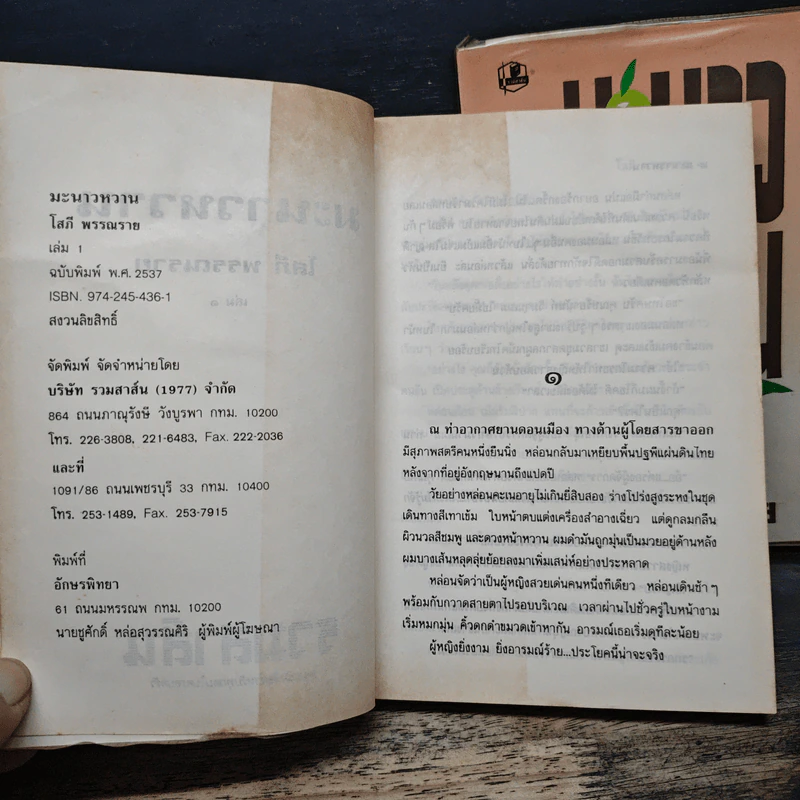 มะนาวหวาน
โสภี พรรณราย
เล่ม 1
ฉบับพิมพ์ พ.ศ. 2537
ISBN. 974-245-436-1
สงวนลิขสิทธิ์
จัดพิมพ์ จัดจำหน่ายโดย
บริษัท รวมสาส์น (1977) จำกัด
864 ถนนภาณุรังษี วังบูรพา กทม. 10200
โทร. 226-3808, 221-6483, Fax. 222-2036
และที่
1091/86 ถนนเพชรบุรี 33 กทม. 10400
โทร. 253-1489, Fax. 253-7915
พิมพ์ที่
อักษรพิทยา
61 ถนนมหรรณพ กทม. 10200
นายชูศักดิ์ หล่อสุวรรณศิริ ผู้พิมพ์ผู้โฆษณา
๑
ณ ท่าอากาศยานดอนเมือง ทางด้านผู้โดยสารขาออก
มีสุภาพสตรีคนหนึ่งยืนนิ่ง หล่อนกลับมาเหยียบพื้นปฐพีแผ่นดินไทย
หลังจากที่อยู่อังกฤษนานถึงแปดปี
วัยอย่างหล่อนคะเนอายุไม่เกินยี่สิบสอง ร่างโปร่งสูงระหงในชุด
เดินทางสีเทาเข้ม ใบหน้าตบแต่งเครื่องสำอางเฉี่ยว แต่ดูกลมกลืน
ผิวนวลสีชมพู และดวงหน้าหวาน ผมดำมันถูกมุ่นเป็นมวยอยู่ด้านหลัง
ผมบางเส้นหลุดลุ่ยย้อยลงมาเพิ่มเสน่ห์อย่างประหลาด
หล่อนจัดว่าเป็นผู้หญิงสวยเด่นคนหนึ่งทีเดียว หล่อนเดินช้า ๆ
พร้อมกับกวาดสายตาไปรอบบริเวณ เวลาผ่านไปชั่วครู่ใบหน้างาม
เริ่มหมกมุ่น คิ้วดกดำขมวดเข้าหากัน อารมณ์เธอเริ่มดุทีละน้อย
ผู้หญิงยิ่งงาม ยิ่งอารมณ์ร้าย...ประโยคนี้น่าจะจริง